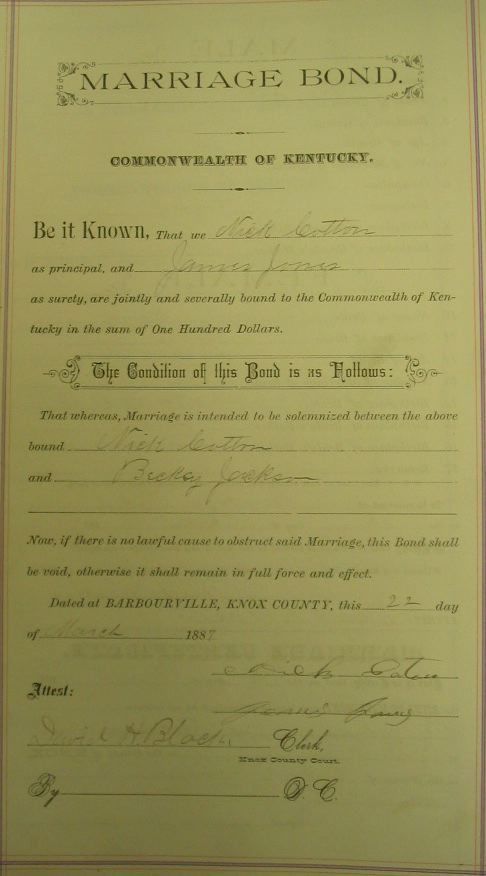 MARRIAGE BOND.
COMMONWEALTH OF KENTUCKY.
Be it Known, That we Nick Cotton
as principal, and James Jones
as surety, are jointly and severally bound to the Commonwealth of Ken-
tucky in the sum of One Hundred Dollars.
The Condition of this Bond is as Follows:
That whereas, Marriage is intended to be solemnized between the above
bound Nick Cotton
and Beckey Jackson
Now, if there is no lawful cause to obstruct said Marriage, this Bond shall
be void, otherwise it shall remain in full force and effect.
Dated at BARBOURVILLE, KNOX COUNTY, this 22 day
of March 1887
Nick
Attest:
David H. Black, Clerk,
Knox County Court.
By D. C.